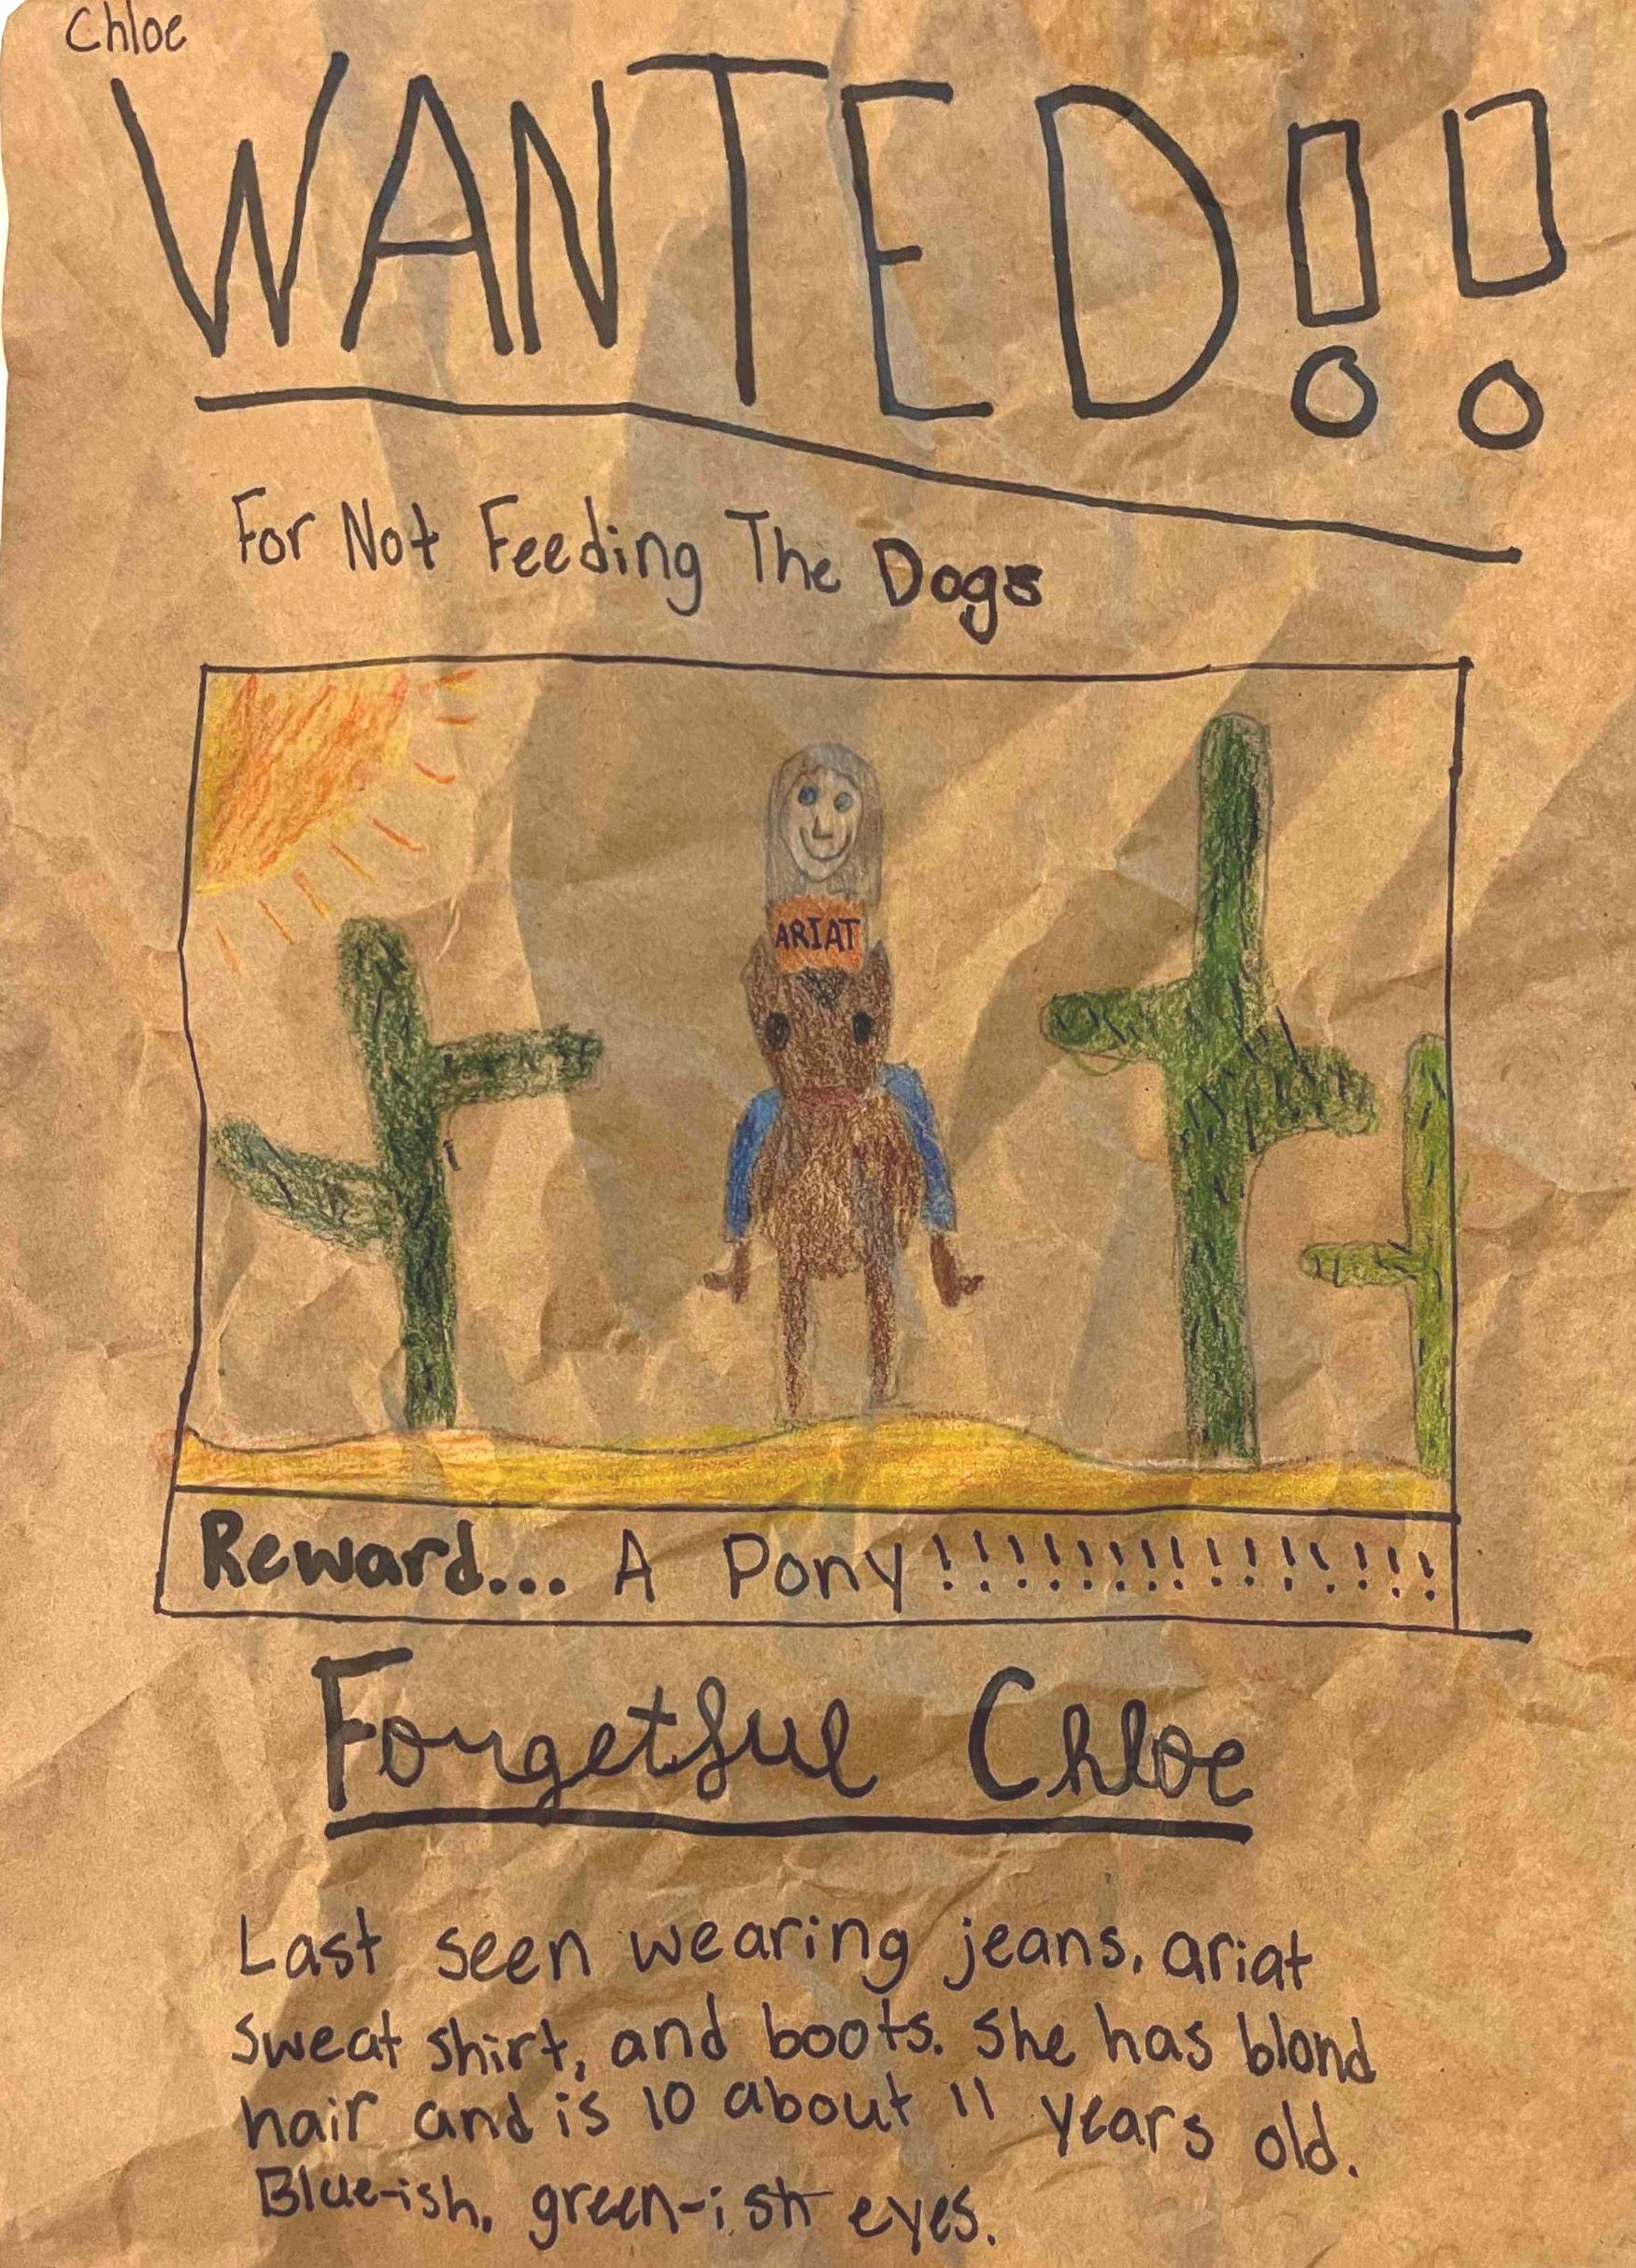 Chloe
WANTED!!
For Not Feeding The Dogs
ARIAT
Reward... A Pony!!!!!!!!!!!!!!!!
Forgetful Chloe
Last seen wearing jeans, ariat
sweat shirt, and boots. She has blond
hair and is 10 about 11 years old.
Blue-ish, green-ish eyes.